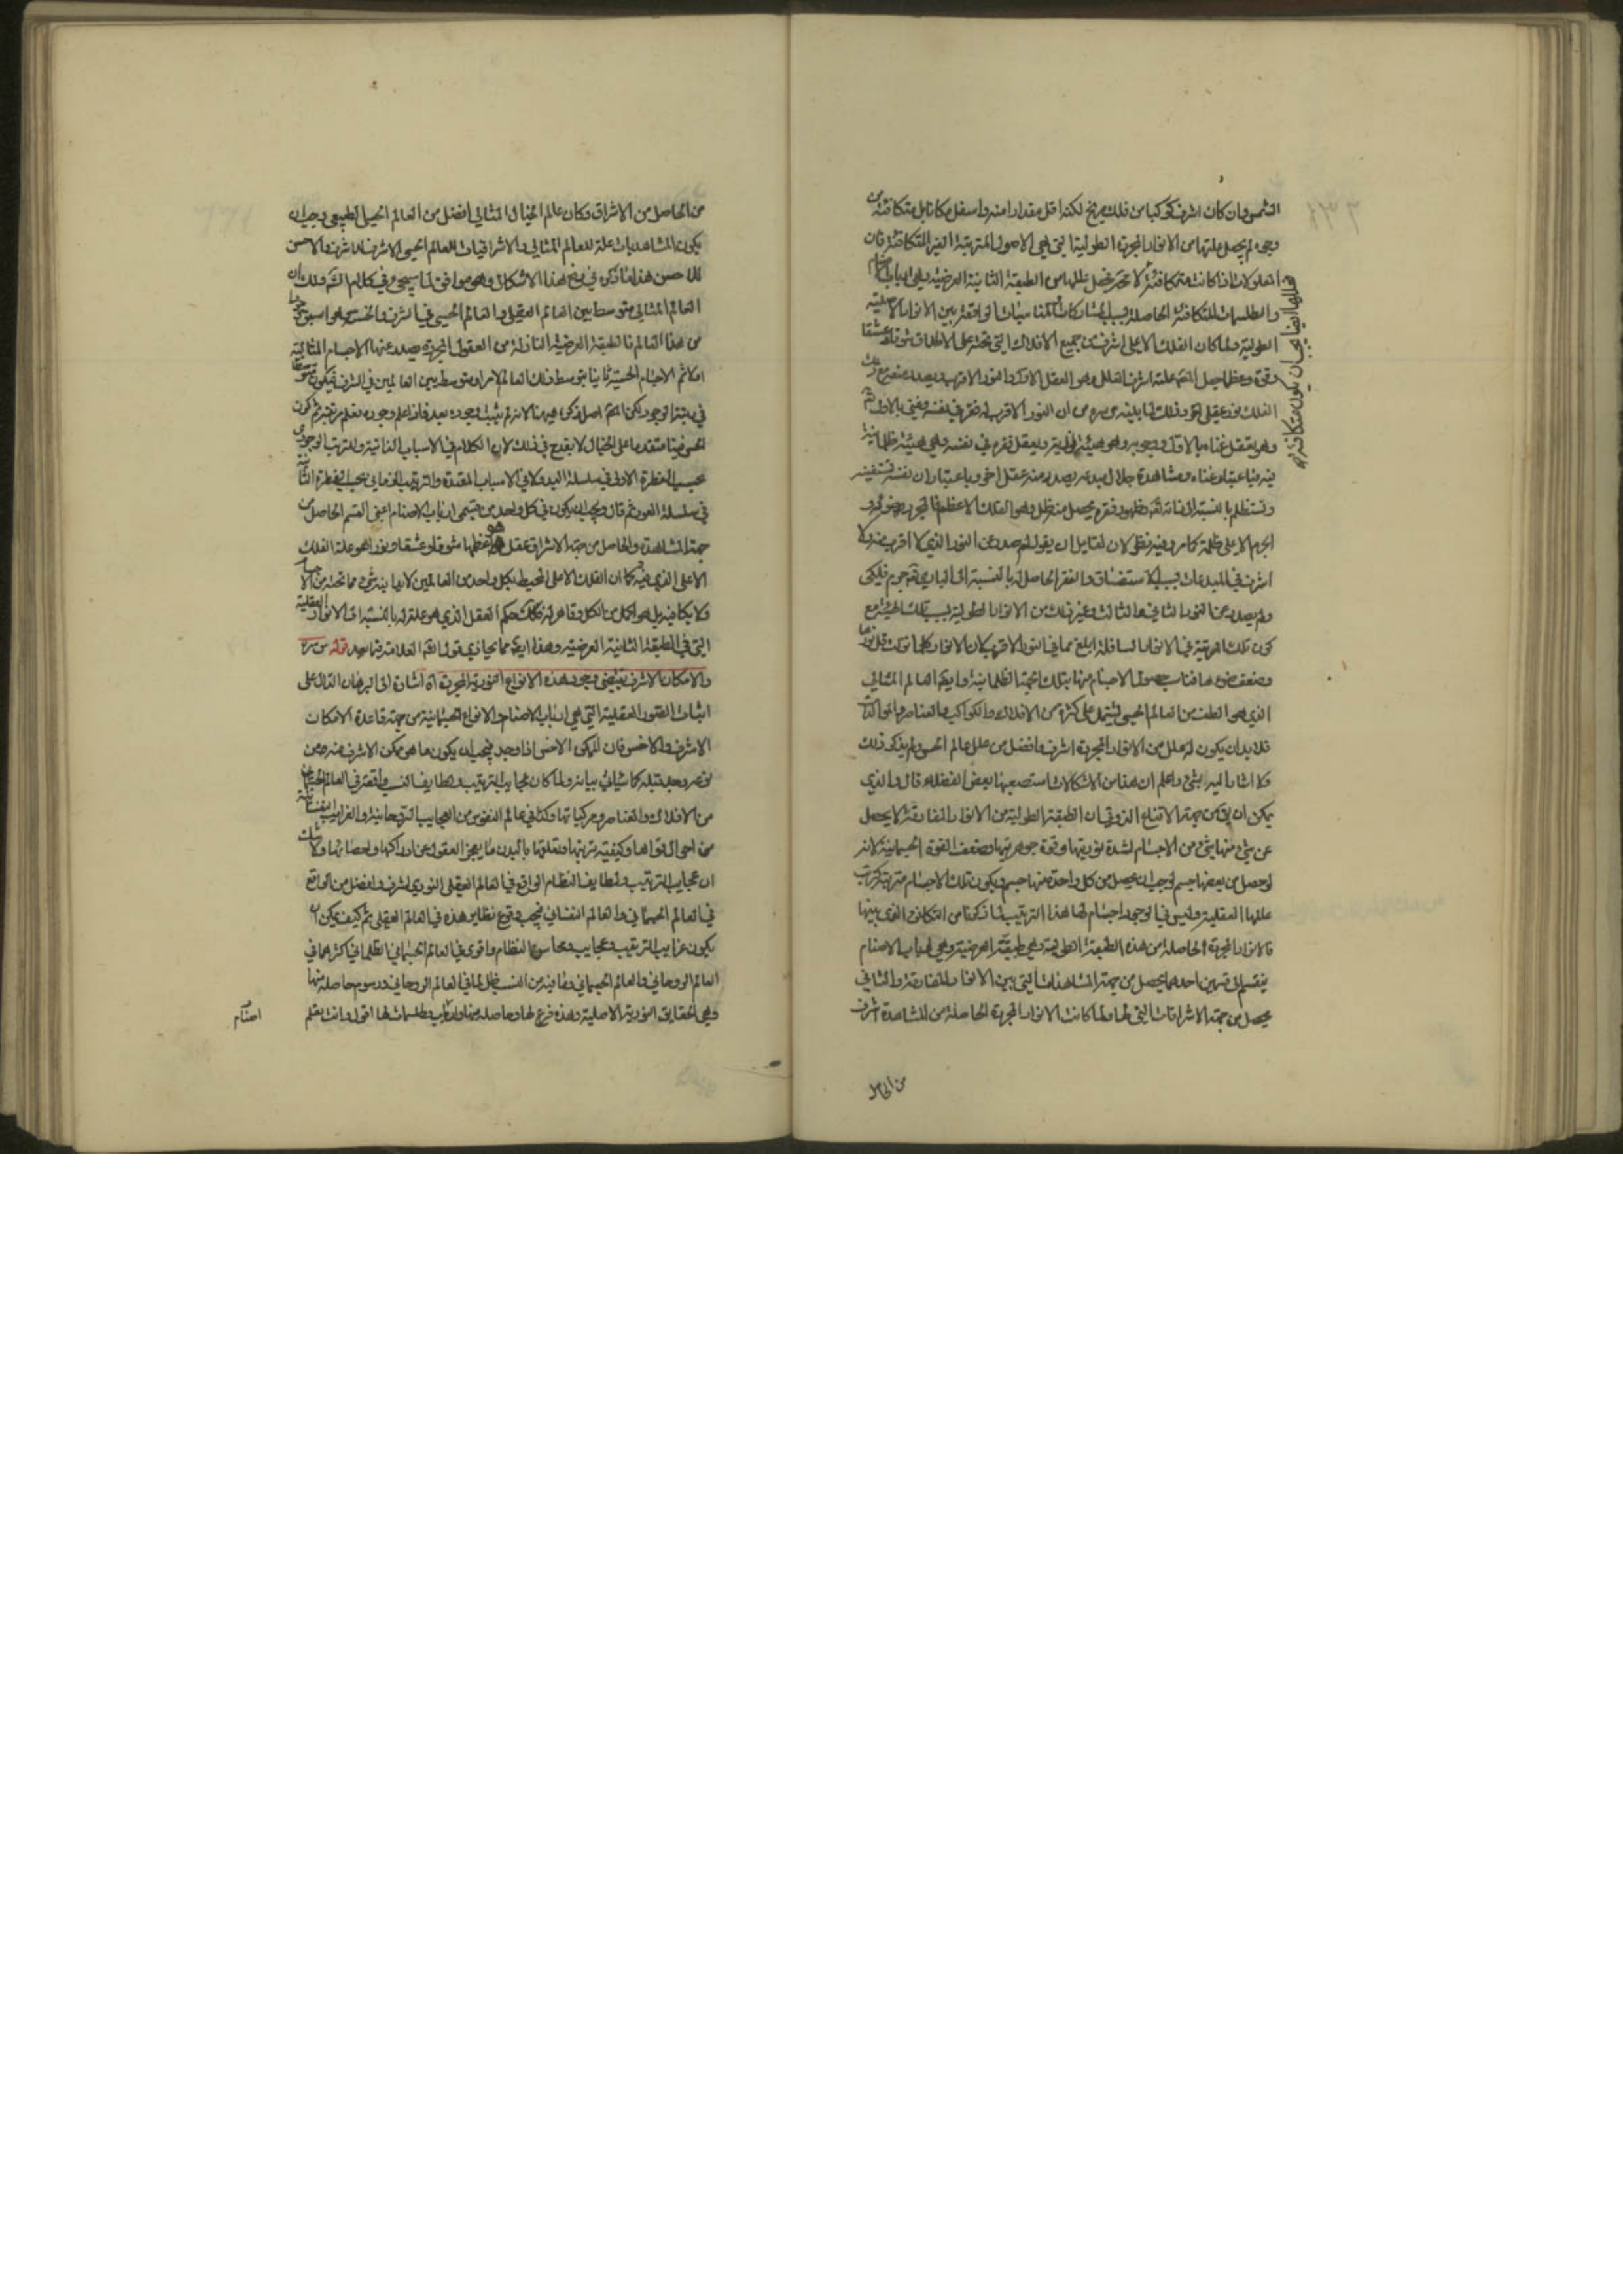 الشمس وان كان اشرف كوكبا من فلك المريخ لكنه اقل مقدارا منه واسفل مكانا بل متكافئة من
وجوه لم يحصل علتها من الانوار المجردة الطولية التى هى الاصول المترتبة الغير المتكافئة فان
المعلولات اذا كانت متكافئة لا محة فحصل عللها من الطبقة الثانية العرضية وهى ارباب الاصنام
والطلسمات المتكافئة الحاصلة بسبب المشاركات والمناسبات الواقعة بين الانوار الاصلية
الطولية ولما كان الفلك الاعلى اشرف من جميع الافلاك التى تحته على الاطلاق شوقا وعشقا
وقوة وعظما جعل علته اشرف العلل وهو العقل الاول والنور الاقرب
الفلك نور عقلى اخر وذلك لما بينه من ان النور الاقرب له فقر فى نفسه وغنى بالاول
وهو يتعقل غناه بالاول ووجوبه وهو هيئة نورية ويعقل فقره فى نفسه وهى هيئة ظلمانية
فيه فباعتبار غناه ومشاهدة جلال مبدعه يصدر منه عقل اخر وباعتبار ان نفسه تستغسق
وتستظلم بالنسبة الى فقره يحصل منه ظل وهو الفلك الاعظم
الجرم الاعلى ظلمة كما مر وفيه نظر لان لقايل ان يقول لم صدر عن النور الذى لا اقرب منه ولا
اشرف فى المبدعات بسبب الاستغساق والفقر الحاصل له بالنسبة الى البارى جرم فلكى
ولم يصدر عن النور الثانى والثالث وغير ذلك من الانوار الطولية بسبب تلك الجهة مع
كون تلك الجهة فى الانوار السافلة ابلغ مما فى النور الاقرب لان الانوار كلما نزلت قل نورها
وضعف ضوءها فناسب حصول الاجسام منها بتلك الجهة الظلمانية وايضا العالم المثالى
الذى هو الطف من العالم الحسى يشتمل على كثرة من الافلاك والكواكب والعناصر والمواليد
فلا بد ان يكون له علل من الانوار المجردة اشرف وافضل من علل عالم الحس ولم يذكر ذلك
ولا اشار اليه بشئ واعلم ان هذا من الاشكالات استصعبها بعض الفضلاء قال والذى
يمكن ان يق من جهة الاقناع الذوقى ان الطبقة الطولية من الانوار المفارقة لا يحصل
عن شئ منها شئ من الاجسام لشدة نوريتها وقوة جوهريتها وضعف القوة الجسمانية لانه
لو حصل من بعضها جسم لوجب ان يحصل من كل واحدة منها جسم ويكون تلك الاجسام مترتبة كترتب
عللها العقلية وليس فى الوجود اجسام لها هذا الترتيب لما ذكرنا من التكافؤ الذى بينها
فالانوار المجردة الحاصلة من هذه الطبقة الطولية وهى طبقة العرضية وهى ارباب الاصنام
ينقسم الى قسمين احدهما يحصل من جهة المشاهدات التى بين الانوار المفارقة والثانى
يحصل من جهة الاشراقات التى لها ولما كانت الانوار المجردة الحاصلة من المشاهدة اشرف
من الحاصل
فعللها ايضا يجب ان يكون متكافئة
من الحاصل من الاشراق وكان عالم الخيال المثالى افضل من العالم الحسى الطبيعى وجب ان
يكون المشاهديات علة للعالم المثالى والاشراقيات للعالم الحسى الاشرف للاشرف والاخس
للاخس هذا ما ذكره فى دفع هذا الاشكال وهو موافق لما سيجئ فى كلام الش وذلك ان
العالم المثالى متوسط بين العالم العقلى والعالم الحسى فى الشرف والخسة وهو اسبق وجودا
من هذا العالم فالطبقة العرضية النازلة من العقول المجردة يصدر عنها الاجسام المثالية
اولا ثم الاجسام الحسية ثانيا بتوسط ذلك العالم لانه متوسط بين العالمين فى الشرف فيكون متوسطا
فى رتبة الوجود لكن اتم اصل ذكره هيهنا لانه لم يثبت وجوده بعد فاذا علم وجوده يعلم مرتبته ثم كون
الحس فينا متقدما على الخيال لا يقدح فى ذلك لان الكلام فى الاسباب الذاتية والترتيب الوجودى
بحسب الفطرة الاولى فى سلسلة البدو لا فى الاسباب المعدة والترتيب الزمانى بحسب الفطرة الثانية
فى سلسلة العود ثم قال ويجب ان يكون فى كل واحد من قسمى ارباب الاصنام اعنى القسم الحاصل من
جهة المشاهدة والحاصل من جهة الاشراق عقل هو اعظمها شوقا وعشقا ونورا هو علة الفلك
الاعلى الذى فيه كما ان الفلك الاعلى المحيط بكل واحد من العالمين لا يدانيه شئ مما تحته من الاجسام
ولا يكافيه بل هو اكمل من الكل وقاهر له فكذلك حكم العقل الذى هو علة له بالنسبة الى الانوار العقلية
التى فى الطبقة الثانية العرضية وهذا ايضا مما يحاذى قول الش العلامة فيما بعد قوله س سره
والامكان الاشرف يقتضى وجود هذه الانواع النورية المجردة اه اشارة الى البرهان الدال على
اثبات العقول العقلية التى هى ارباب الاصنام والانواع الجسمانية من جهة قاعدة الامكان
الاشرف والاخس فان الممكن الاخس اذا وجد فيجب ان يكون ما هو ممكن الاشرف منه من
نوعه وجد قبله كما سيأتى بيانه ولما كان عجايب الترتيب ولطايف النسب واقعة فى العالم الجسمانى
من الافلاك والعناصر ومركباتها وكذا فى عالم النفوس من العجايب الروحانية والغرايب النفسانية
من احوال قواها وكيفية ترتيبها وتعلقها بالبدن ما يعجز العقول عن ادراكها واحصائها ولا شك
ان عجايب الترتيب ولطايف النظام الواقع فى العالم العقلى النورى اشرف وافضل من الواقع
فى العالم الجسمانى والعالم النفسانى فيجب وقوع نظاير هذه فى العالم العقلى ثم كيف يمكن ان
يكون غرايب الترتيب وعجايب ومحاسن النظام واقوى فى العالم الجسمانى الظلمانى اكثر مما فى
العالم الروحانى والعالم الجسمانى وما فيه من النسب ظل لما فى العالم الروحانى ورسوم حاصلة منها
وهى الحقايق النورية الاصلية وهذه فرع لها وحاصلة منها وطلسمات لها اقول وانت تعلم
اصنام